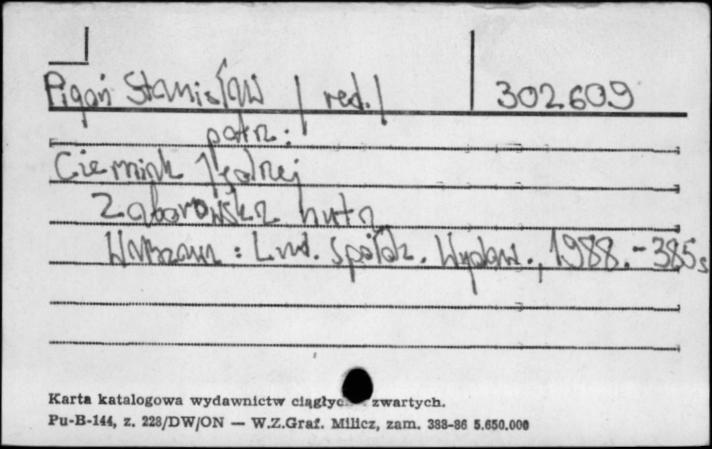 Pigoń Stanisław /red./ 302609
patrz:
Cierniak Jędrzej
Zaborowska nuta
Warszawa : Lud. Spółdz. Wydaw., 1988. - 385 s
Karta katalogowa wydawnictw ciągłyc zwartych.
Pu-B-144, z. 228/DW/ON — W.Z.Graf. Milicz, zam. 388-86 5.650.000